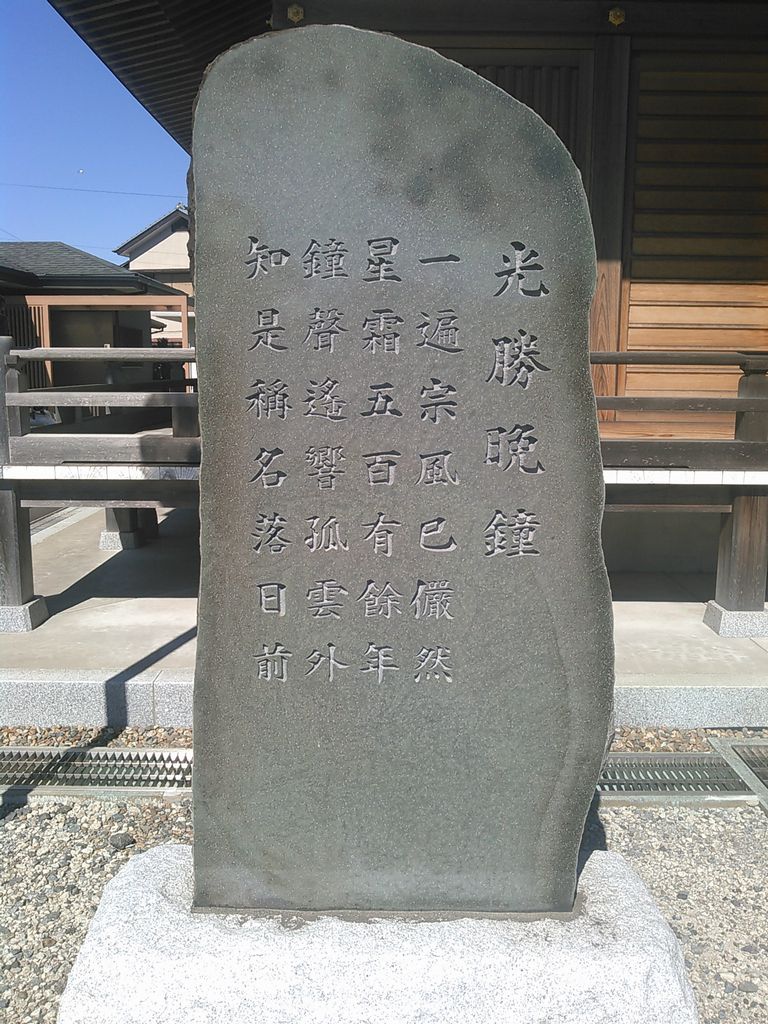 光勝晩鐘
一遍宗風已儼然
星霜五百有餘年
鐘聲遙響孤雲外
知是稱名落日前